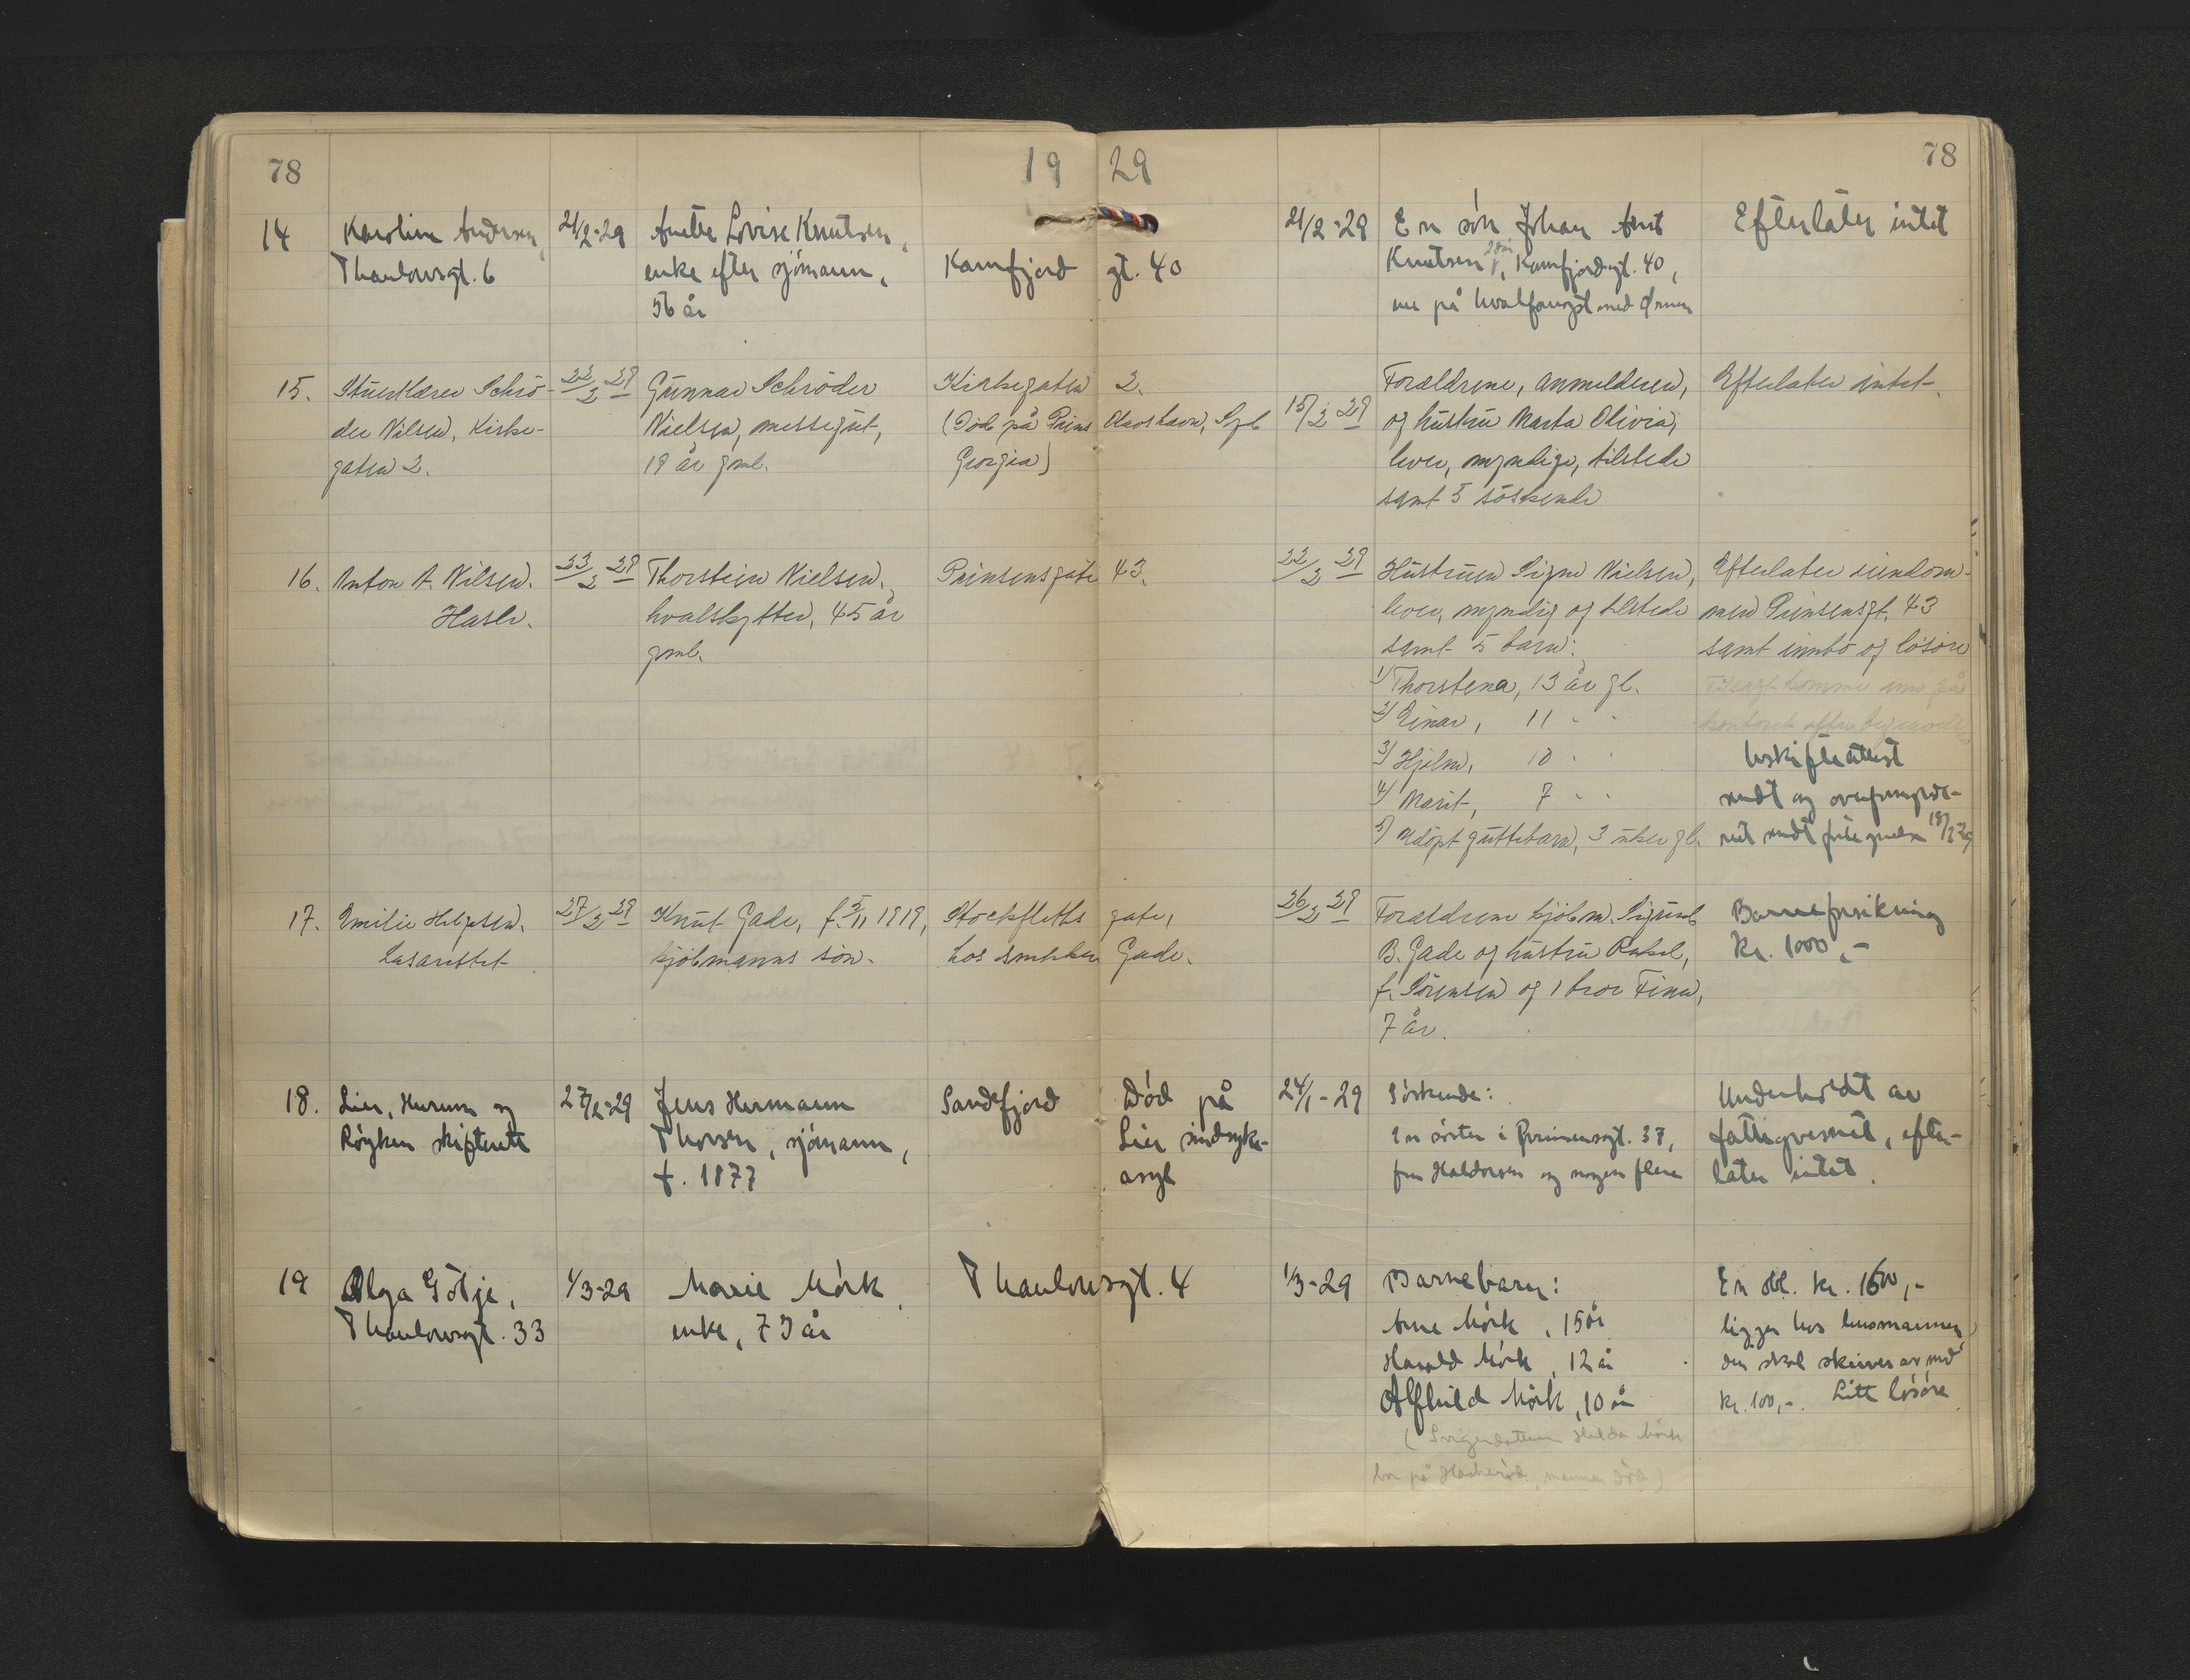 78
19 29
78
14 Karoline Andersen 21/2-29 Anette Lovise Knutsen, 21/2-29 En sön Johan Arnt Efterlater intet
Thaulowsgt. 6 enke efter sjömann, Kamfjord gt. 40 Knutsen, Kamfjordgt. 40,
56 år nu på hvalfangst med Ørnen
15. Schrö- 22/2 29 Gunnar Schröder Kirkegaten 2. Forældrene, anmelderen, Efterlater intet.
der Nilsen, Kirke- Nielsen, messegut, (Död på Prins Olavs havn, Syd 15/2 29 og hustru Marta Olivia,
gaten 2. 19 år gml. Georgia) lever, myndige, tilstede
samt 5 söskende
16. Anton A. Nilsen. 23/2 29 Thorstein Nielsen, Prinsensgate 43. 22/2 29 Hustruen Signe Nielsen, Efterlater eiendom-
Hasle. hvalskytter, 45 år lever, myndig og tilstede men Prinsensgt. 43
gml. samt 5 barn: samt innbo og lösöre
1) Thorstena, 13 år gl. komme inn på
2) Einar, 11 " " kontoret efter begravelsen
3) Hjelm, 10 " " Uskifteattest
4) Marit, 7 " "
5) Udöpt guttebarn, 3 uker gl.
17. Emilie Helgesen. 27/2 29 Knut Gade, f. 5/11 1919, Stockfleths gate, 26/2 29 Forældrene kjöbm. Sigurd Barneforsikring
Lasarettet kjöbmanns sön. hos snekker Gade. B. Gade og hustru Rakel, Kr. 1000,-
f. Sörensen og 1 bror Finn,
7 år.
18. Lier, Hurum og 27/2-29 Jens Hermann Sandefjord Död på 24/1-29 Söskende: Underholdt av
Röyken skifterett Thorsen, sjömann, Lier sindsyke- En söster i Prinsensgt. 37, fattigvesnet, efter-
f. 1877 asyl fru Haldorsen og nogen flere later intet.
19 Olga Götje, 1/3-29 Marie Mörk, Thaulowsgt. 4 1/3-29 Barnebarn: En obl. kr. 1600,-
Thaulowsgt. 33 enke, 73 år Arne Mörk, 15 år ligger hos husmannen
Harald Mörk, 12 år den skal skrives av med
Alfhild Mörk, 10 år kr. 100,-. Litt lösöre
(Svigerdatter Hilda Mörk
bor på Haukeröd, mannen död)